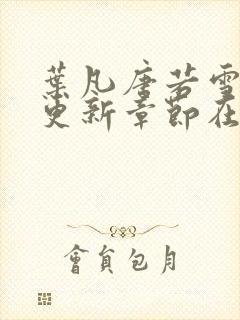 葉凡唐若雪
更新章節在
會員包月